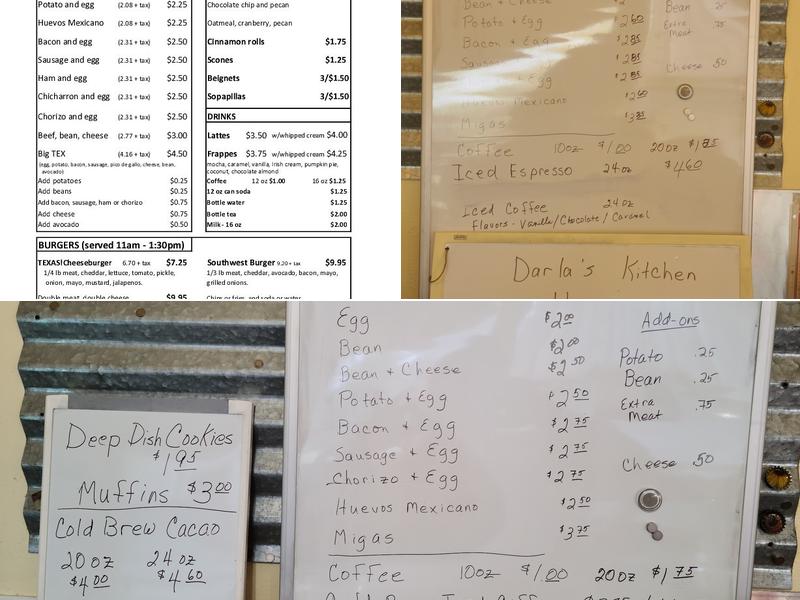 Potato and egg (2.08 + tax) $2.25
Huevos Mexicano (2.08 + tax) $2.25
Bacon and egg (2.31 + tax) $2.50
Sausage and egg (2.31 + tax) $2.50
Ham and egg (2.31 + tax) $2.50
Chicharron and egg (2.31 + tax) $2.50
Chorizo and egg (2.31 + tax) $2.50
Beef, bean, cheese (2.77 + tax) $3.00
Big TEX (4.16 + tax) $4.50
(egg, potato, bacon, sausage, pico de gallo, cheese, bean,
avocado)
Add potatoes $0.25
Add beans $0.25
Add bacon, sausage, ham or chorizo $0.75
Add cheese $0.75
Add avocado $0.50
Chocolate chip and pecan
Oatmeal, cranberry, pecan
Cinnamon rolls $1.75
Scones $1.25
Beignets 3/$1.50
Sopapillas 3/$1.50
DRINKS
Lattes $3.50 w/whipped cream $4.00
Frappes $3.75 w/whipped cream $4.25
mocha, caramel, vanilla, Irish cream, pumpkin pie,
coconut, chocolate almond
Coffee 12 oz $1.00 16 oz $1.25
12 oz can soda $1.25
Bottle water $1.25
Bottle tea $2.00
Milk - 16 oz $2.00
BURGERS (served 11am - 1:30pm)
TEXAS!Cheeseburger 6.70 + tax $7.25
1/4 lb meat, cheddar, lettuce, tomato, pickle,
onion, mayo, mustard, jalapenos.
Double meat, double cheese $9.95
Southwest Burger 9.20 + tax $9.95
1/3 lb meat, cheddar, avocado, bacon, mayo,
grilled onions.
Chips or fries, and soda or water
Bean + Cheese
Potato + Egg $2.60
Bacon + Egg $2.85
Sausage + Egg $2.85
+ Egg $2.85
Huevos Mexicano $2.60
Migas $3.85
Bean .25
Extra .75
Meat
Cheese .50
Coffee 10oz $1.00 20oz $1.85
Iced Espresso 24oz $4.60
Iced Coffee 24oz
Flavors - Vanilla/Chocolate/Caramel
Darla's Kitchen
Deep Dish Cookies
$1.95
Muffins $3.00
Cold Brew Cacao
20 oz 24 oz
$4.00 $4.60
Egg $2.00
Bean $2.00
Bean + Cheese $2.50
Potato + Egg $2.50
Bacon + Egg $2.75
Sausage + Egg $2.75
Chorizo + Egg $2.75
Huevos Mexicano $2.50
Migas $3.75
Add-ons
Potato .25
Bean .25
Extra .75
Meat
Cheese .50
Coffee 10oz $1.00 20oz $1.75